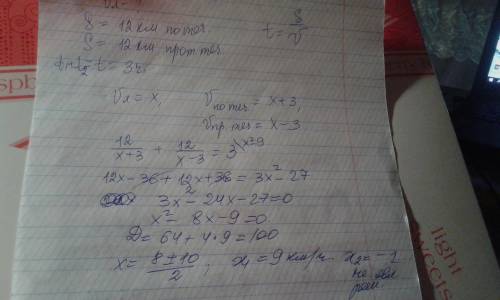 Vл =
S = 12 км по теч.
t = S/V
S = 12 км прот теч
t = 3ч
Vл = x, Vпо теч = x+3,
Vпр. теч = x-3
12/(x+3) + 12/(x-3) = 3 \x²-9
12x - 36 + 12x + 36 = 3x² - 27
3x² - 24x - 27 = 0
x² - 8x - 9 = 0
D = 64 + 4·9 = 100
x = (8±10)/2 ; x₁ = 9 км/ч. x₂ = -1
не явл
реш
light
sweets